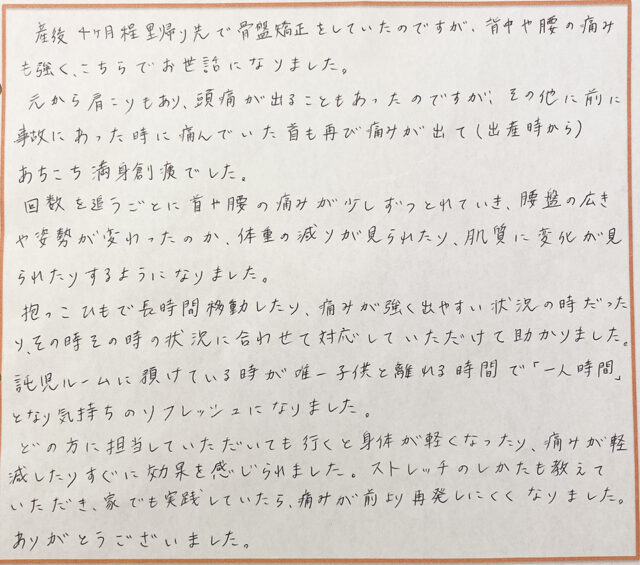 産後4ヶ月程里帰り先で骨盤矯正をしていたのですが、背中や腰の痛み
も強く、こちらでお世話になりました。
元から肩こりもあり、頭痛が出ることもあったのですが、その他に前に
事故にあった時に痛んでいた首も再び痛みが出て(出産時から)
あちこち満身創痍でした。
回数を追うごとに首や腰の痛みが少しずつとれていき、腰盤の広き
や姿勢が変わったのか、体重の減りが見られたり、肌質に変化が見
られたりするようになりました。
抱っこひもで長時間移動したり、痛みが強く出やすい状況の時だった
り、その時その時の状況に合わせて対応していただけて助かりました。
託児ルームに預けている時が唯一子供と離れる時間で「一人時間」
となり気持ちのリフレッシュになりました。
どの方に担当していただいても行くと身体が軽くなったり、痛みが軽
減したりすぐに効果を感じられました。ストレッチのしかたも教えて
いただき、家でも実践していたら、痛みが前より再発しにくくなりました。
ありがとうございました。